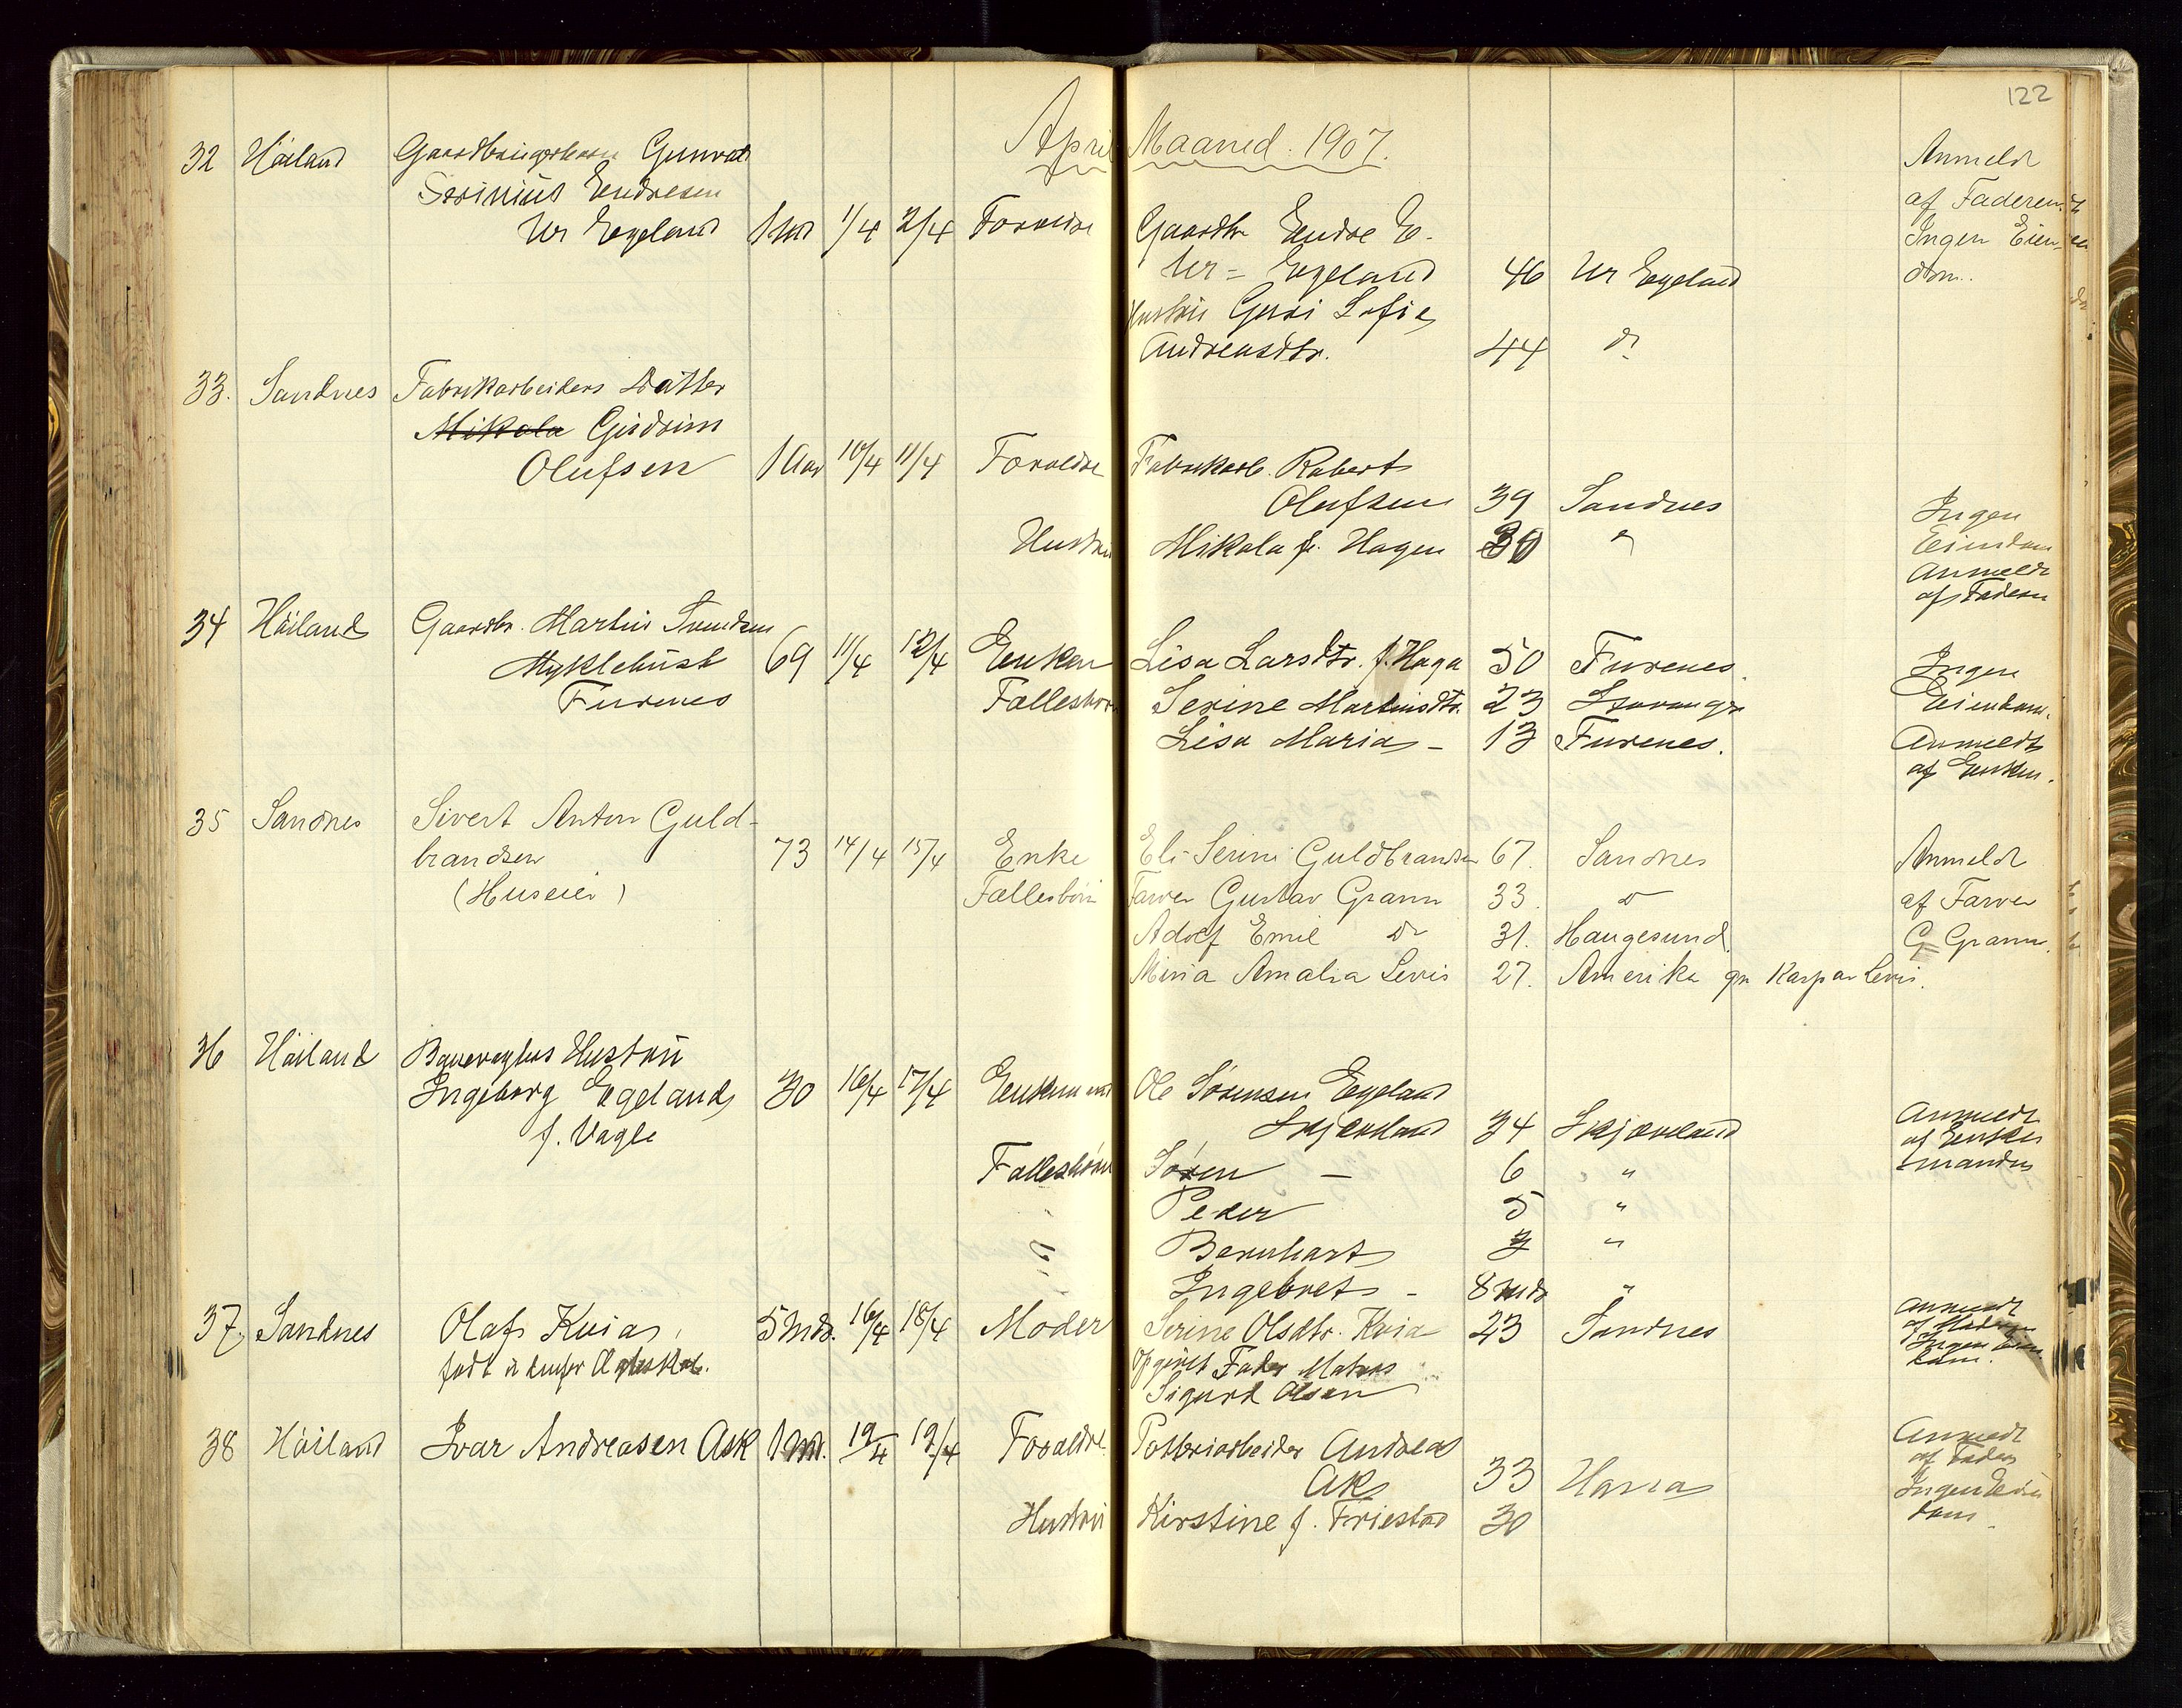 122
April Maaned. 1907.
32 Höiland Gaardbrugerbarn Gunval
Serinius Endresen
Ur Eegeland 1 Md 1/4 2/4 Forældre
Gaardbr Endre E.
Ur = Eegeland 46 Ur Egeland
Hustru Guri Sofie
Andreasdtr. 44 do
Anmeldt
af Faderen
Ingen Eien-
dom.
33. Sandnes Fabrikarbeiders Datter
Mikala Gudrun
Olufsen 1 Aar 10/4 11/4 Forældre
Fabrikarb. Robert
Olufsen 39 Sandnes
Hustru Mikala f. Hagen 30 "
Ingen
Eiendom
Anmeldt
af Faderen
34 Höiland Gaardbr. Martin Svendsen
Myklebust 69 11/4 12/4 Enken Lisa Larsdtr. f. Haga 50 Furenes.
Furenes Fællesbørn Serine Martinsdtr. 23 Stavanger
Lisa Maria - 13 Furenes.
Ingen
Eiendom.
Anmeldt
af Enken.
35 Sandnes Sivert Anton Guld-
brandsen 73 14/4 15/4 Enke Eli Serine Guldbrandsen 67. Sandnes
(Huseier) Fællesbörn Farver Gustav Grann 33. do
Adolf Emil do 31. Haugesund.
Mina Amalia Levis 27. Amerika gm Kaspar Levis.
Anmeldt
af Farver
G. Grann.
36 Höiland Banevogters Hustru
Ingeborg Egeland 30 16/4 17/4 Enkemand Ole Sörensen Egeland
f. Vagle Skjæveland 34 Skjæveland
Fællesbörn Sören - 6 "
Peder 5 "
" Bernhart 3 "
Ingebret - 8 Mdr "
Anmeldt
af Enke
manden
37, Sandnes Olaf Kvia, 5 Mdr. 16/4 18/4 Moder Serine Olsdtr. Kvia 23 Sandnes
født udenfor Ægteskab. Opgivet Fader Matros
Sigurd Olsen
Anmeldt
af Moderen
Ingen Eien
dom.
38 Höiland Ivar Andreasen Ask 1 Md. 19/4 19/4 Forældre Potteriarbeider Andreas
Ask 33 Hana
Hustru Kirstine f. Friestad 30
Anmeldt
af Fader
Ingen Eien
dom